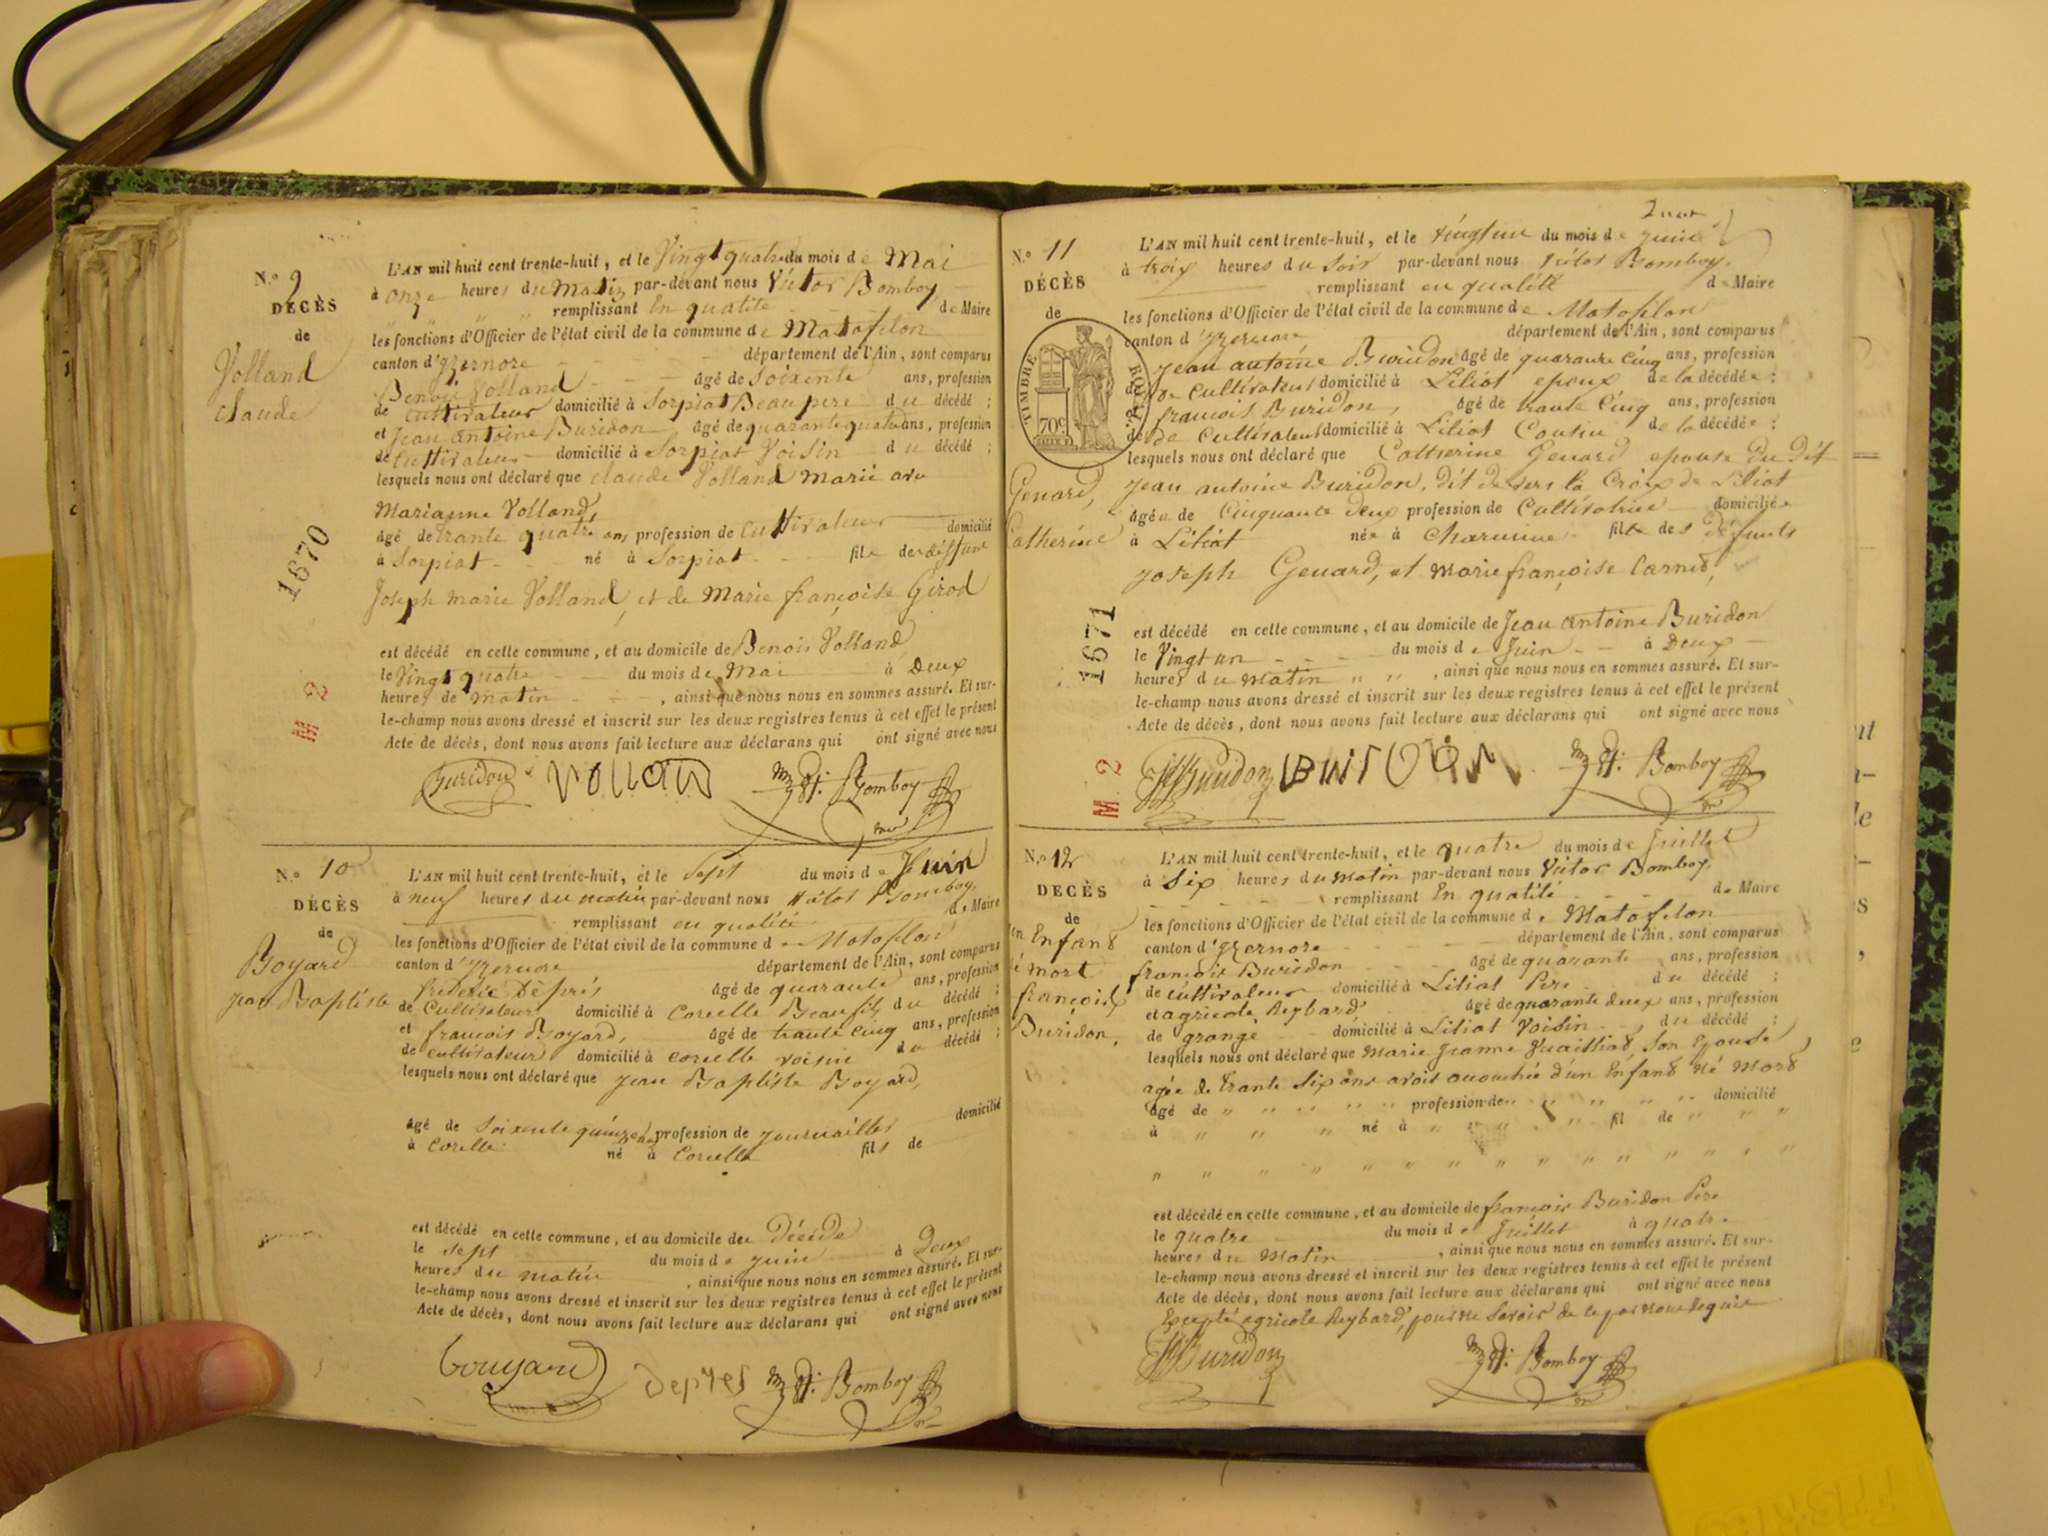 N.o 9
DÉCÈS
de
Volland
claude
1670
M. 2
L'AN mil huit cent trente-huit, et le Vingt quatre du mois de Mai
à onze heures du Matin par-devant nous Victor Bomboy
remplissant En qualité de Maire
les fonctions d'Officier de l'état civil de la commune de Matafelon
canton d'Yzernore département de l'Ain, sont comparus
Benoit Volland âgé de soixente ans, profession
de Cultivateur domicilié à Sorpiat Beaupere du décédé ;
et Jean Antoine Buridon âgé de quarante quatre ans, profession
de Cultivateur domicilié à Sorpiat Voisin du décédé ;
lesquels nous ont déclaré que claude Volland marié avec
Marianne Volland,
âgé de trante quatre ans, profession de Cultivateur domicilié
à Sorpiat né à Sorpiat fils de deffunt
Joseph marie Volland, et de Marie françoise Girod
est décédé en cette commune, et au domicile de Benoit Volland
le Vingt quatre du mois de Mai à Deux
heures de matin, ainsi que nous nous en sommes assuré. Et sur-
le-champ nous avons dressé et inscrit sur les deux registres tenus à cet effet le présent
Acte de décès, dont nous avons fait lecture aux déclarans qui ont signé avec nous
Buridon VOLLAND Bomboy
N.o 10
DÉCÈS
de
Boyard
jean Baptiste
L'AN mil huit cent trente-huit, et le Sept du mois de Juin
à neuf heures du matin par-devant nous Victor Bomboy,
remplissant en qualité de Maire
les fonctions d'Officier de l'état civil de la commune de Matafelon
canton d'Yzernore département de l'Ain, sont comparus
frederic Dèprés âgé de quarante ans, profession
de Cultivateur domicilié à Corcelle Beaufils du décédé ;
et francois Boyard, âgé de trante cinq ans, profession
de cultivateur domicilié à corcelle voisin du décédé ;
lesquels nous ont déclaré que jean Baptiste Boyard,
âgé de soixente quinze ans profession de journaillier domicilié
à Corcelle né à Corcelle fils de
est décédé en cette commune, et au domicile du Décédé
le sept du mois de juin à Deux
heures du matin, ainsi que nous nous en sommes assuré. Et sur-
le-champ nous avons dressé et inscrit sur les deux registres tenus à cet effet le présent
Acte de décès, dont nous avons fait lecture aux déclarans qui ont signé avec nous
bouyard depres Bomboy
N.o 11
DÉCÈS
de
TIMBRE ROYAL
70c
Genard,
Catherine
1671
M. 2
L'AN mil huit cent trente-huit, et le vingt un du mois de juin
à trois heures du soir par-devant nous Victor Bomboy,
remplissant en qualité de Maire
les fonctions d'Officier de l'état civil de la commune de Matafelon
canton d'Yzernore département de l'Ain, sont comparus
jean antoine Buridon âgé de quarante cinq ans, profession
de Cultivateur domicilié à Liliat epoux de la décédée ;
francois Buridon, âgé de trante Cinq ans, profession
de Cultivateur domicilié à Liliat Cousin de la décédée ;
lesquels nous ont déclaré que Catherine Genard epouse du Dit
jean antoine Buridon, dit devers la Croix de Liliat
âgée de Cinquante Deux profession de Cultivatrice domiciliée
à Liliat née à Charnune fille des Défunts
joseph Genard, et marie françoise Carned,
est décédé en cette commune, et au domicile de Jean Antoine Buridon
le Vingt un du mois de Juin à Deux
heures du matin, ainsi que nous nous en sommes assuré. Et sur-
le-champ nous avons dressé et inscrit sur les deux registres tenus à cet effet le présent
Acte de décès, dont nous avons fait lecture aux déclarans qui ont signé avec nous
Buridon Bomboy
N.o 12
DÉCÈS
de
un Enfand
né mort
françois
Buridon,
L'AN mil huit cent trente-huit, et le quatre du mois de Juillet
à Six heures du matin par-devant nous Victor Bomboy
remplissant En qualité de Maire
les fonctions d'Officier de l'état civil de la commune de Matafelon
canton d'Yzernore département de l'Ain, sont comparus
françois Buridon âgé de quarante ans, profession
de cultivateur domicilié à Liliat Pere du décédé ;
et agricole Reybard, âgé de quarante deux ans, profession
de grangé domicilié à Liliat Voisin du décédé ;
lesquels nous ont déclaré que marie jeanne Vuailliad, son Epouse,
agée de trante six ans avoit acouchée d'un Enfand né Mord
âgé de profession de domicilié
à né à fil de
est décédé en cette commune, et au domicile de françois Buridon Pere
le quatre du mois de Juillet à quatre
heures du Matin, ainsi que nous nous en sommes assuré. Et sur-
le-champ nous avons dressé et inscrit sur les deux registres tenus à cet effet le présent
Acte de décès, dont nous avons fait lecture aux déclarans qui ont signé avec nous
Excepté agricole Reybard, pour ne savoir de ce par nous Requis
Buridon Bomboy